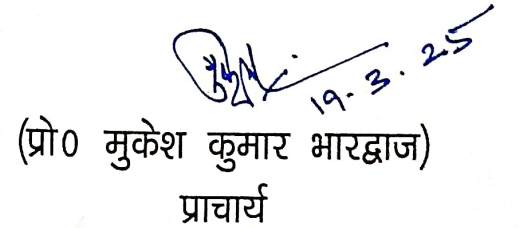 19.3.25
(प्रो0 मुकेश कुमार भारद्वाज)
प्राचार्य